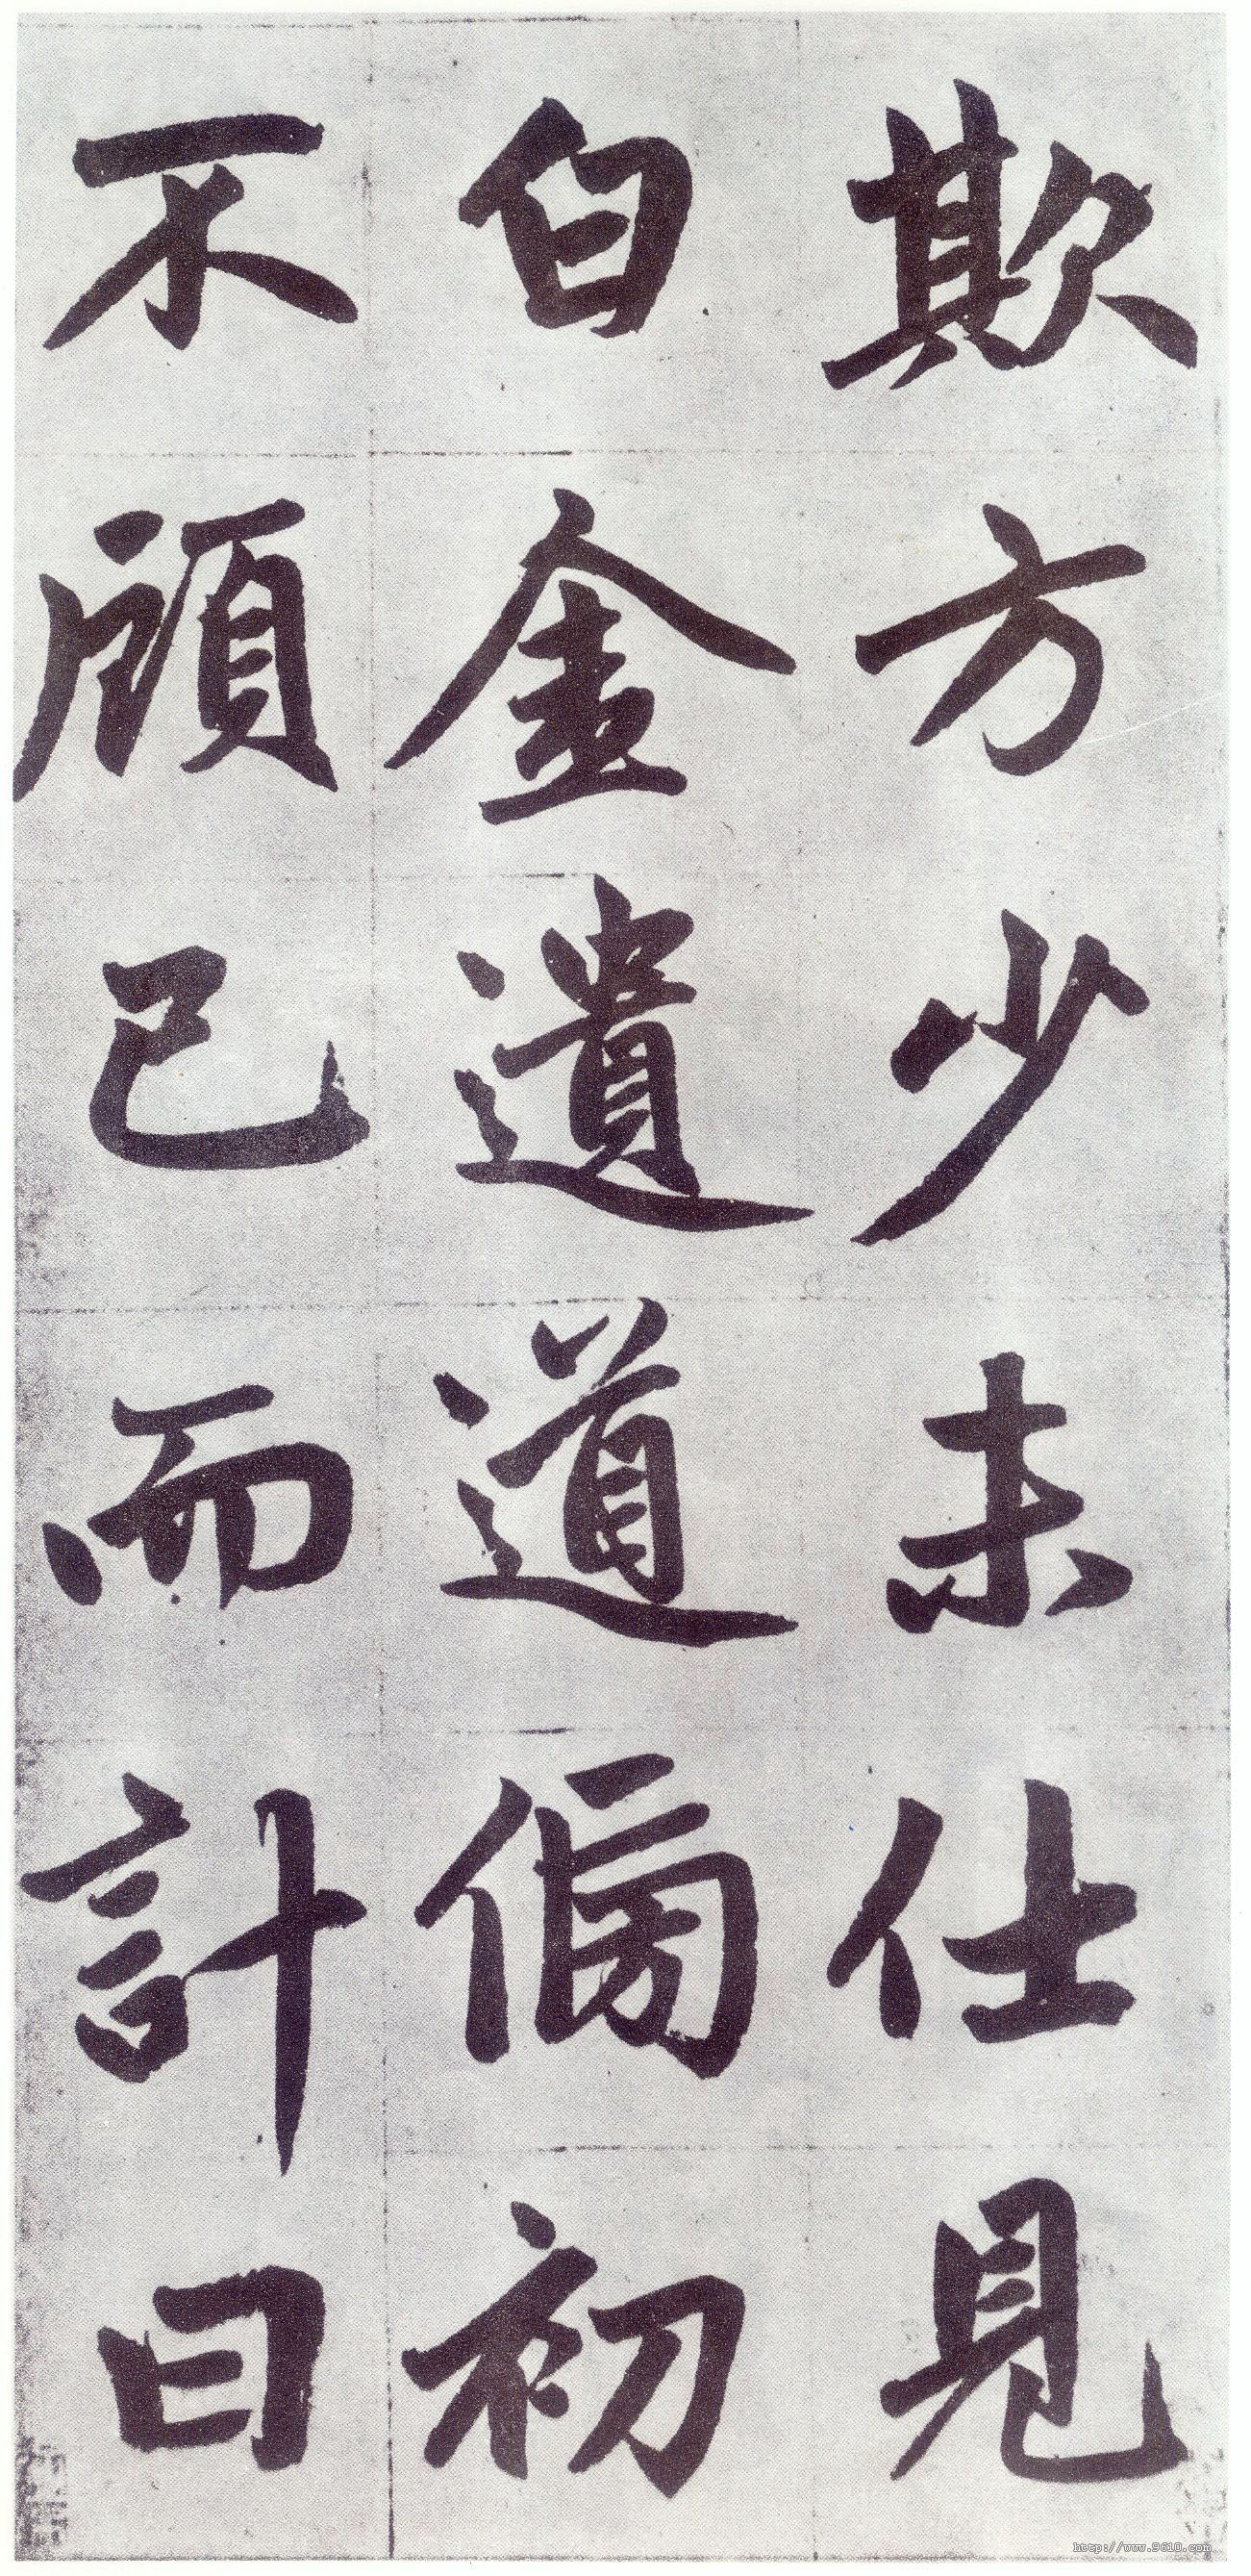 欺方少未仕見
白金遺道傍初
不顧己而計日
http://www.9610.com